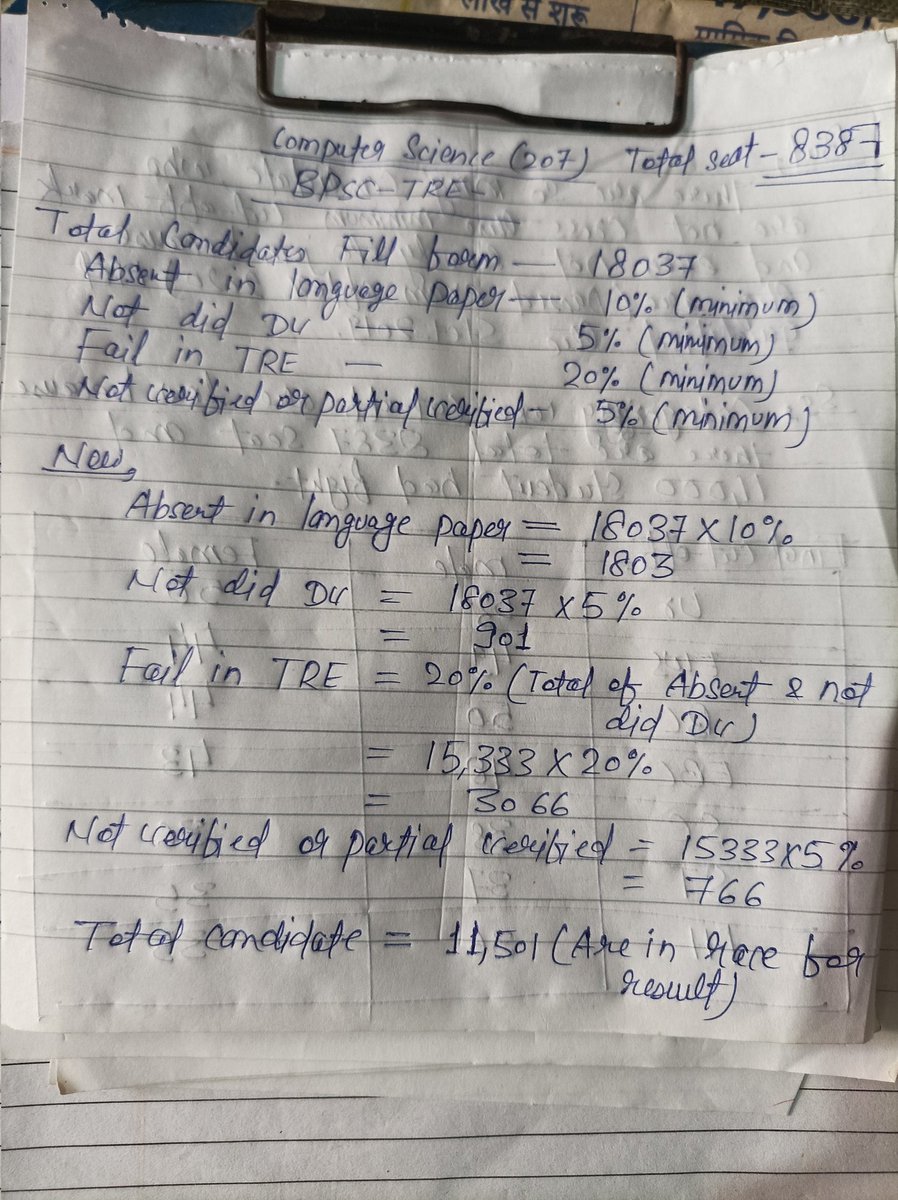 लाख से शुरू
Computer Science (207) Total seat - 8387
BPSC-TRE
Total Candidates Fill form — 18037
Absent in language paper — 10% (minimum)
Not did DV — 5% (minimum)
Fail in TRE — 20% (minimum)
Not verified or partial verified - 5% (minimum)
Now,
Absent in language paper = 18037 X 10%
= 1803
Not did DV = 18037 X 5%
= 901
Fail in TRE = 20% (Total of Absent & not
did DV)
= 15,333 X 20%
= 3066
Not verified or partial verified = 15333X5%
= 766
Total candidate = 11,501 (Are in race for
result)